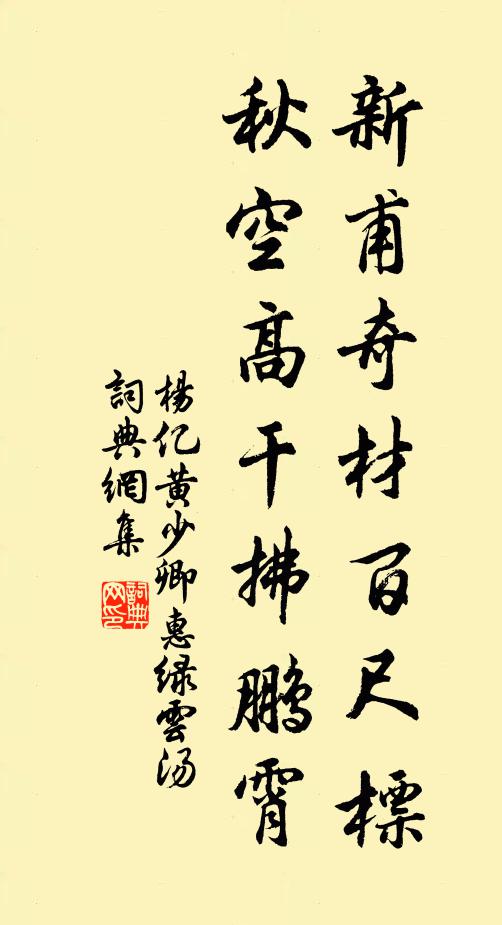 新甫奇材百尺標
秋空高干拂鵬霄
楊亿黄少卿惠绿雲汤
詞典網集
詞典網印